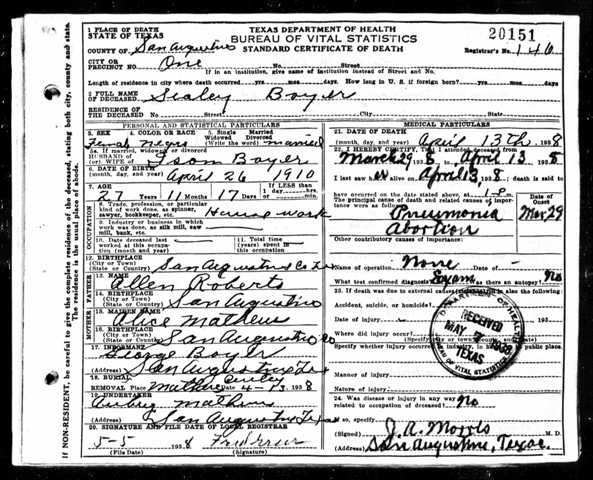 1 PLACE OF DEATH
STATE OF TEXAS
TEXAS DEPARTMENT OF HEALTH
BUREAU OF VITAL STATISTICS
STANDARD CERTIFICATE OF DEATH
20151
COUNTY OF San Augustine
Registrar's No. 146
CITY OR
PRECINCT NO. One No. Street
If in an institution, give name of institution instead of Street and No.
Length of residence in city where death occurred yrs. mos. days. How long in U. S. if foreign born? yrs. mos. days
2 FULL NAME
OF DECEASED Sealey Boyer
RESIDENCE OF
THE DECEASED No. Street City State
PERSONAL AND STATISTICAL PARTICULARS
3. SEX 4. COLOR OR RACE 5. Single Married
Widowed Divorced
Female Negro (Write the word) married
5a. If married, widowed or divorced
HUSBAND OF
(or) WIFE OF Isom Boyer
6. DATE OF BIRTH
(month, day, and year) April 26 1910
7. AGE If LESS than
1 day
27 Years 11 Months 17 Days hrs. min.
OCCUPATION
8. Trade, profession, or particular
kind of work done, as spinner,
sawyer, bookkeeper, etc. House work
9. Industry or business in which
work was done, as silk mill, saw
mill, bank, etc.
10. Date deceased last
worked at this occupation
(month and year)
11. Total time (years)
spent in this
occupation
12. BIRTHPLACE
(City or Town)
(State or Country) San Augustine Co Tex
FATHER
13. NAME
Allen Roberts
14. BIRTHPLACE
(City or Town)
(State or Country) San Augustine
MOTHER
15. MAIDEN NAME
Alice Mathews
16. BIRTHPLACE
(City or Town)
(State or Country) San Augustine Co
17. INFORMANT
George Boyer
(Address) San Augustine Tex
18. BURIAL
REMOVAL Place Date 4-13 1938
19. UNDERTAKER
Aubry Mathews
(Address) San Augustine Texas
20. SIGNATURE AND FILE DATE OF LOCAL REGISTRAR
5-5 1938
MEDICAL PARTICULARS
21. DATE OF DEATH
(month, day, and year) April 13th, 1938
22. I HEREBY CERTIFY, That I attended deceased from
March 29 1938 to April 13 1938
I last saw er alive on April 13 1938; death is said to
have occurred on the date stated above, at 1-P m.
The principal cause of death and related causes of
importance were as follows: Date of
Onset
Pneumonia Mar 29
Abortion
Other contributory causes of importance:
Name of operation None Date of -
What test confirmed diagnosis? Exam Was there an autopsy? No
23. If death was due to external causes (violence) fill in also the following:
Accident, suicide, or homicide?
Date of injury 193
Where did injury occur?
(Specify city or town, county, and State)
Specify whether injury occurred in industry, in home, or in public place.
Manner of injury
Nature of injury
24. Was disease or injury in any way
related to occupation of deceased? No
If so, specify
(Signed) J. A. Morris M. D.
San Augustine, Texas.
DEPARTMENT OF HEALTH
RECEIVED
MAY 1938
TEXAS
BUREAU OF VITAL STATISTICS
If NON-RESIDENT, be careful to give the complete residence of the deceased, stating both city, county and state.
The residence is the usual place of abode.